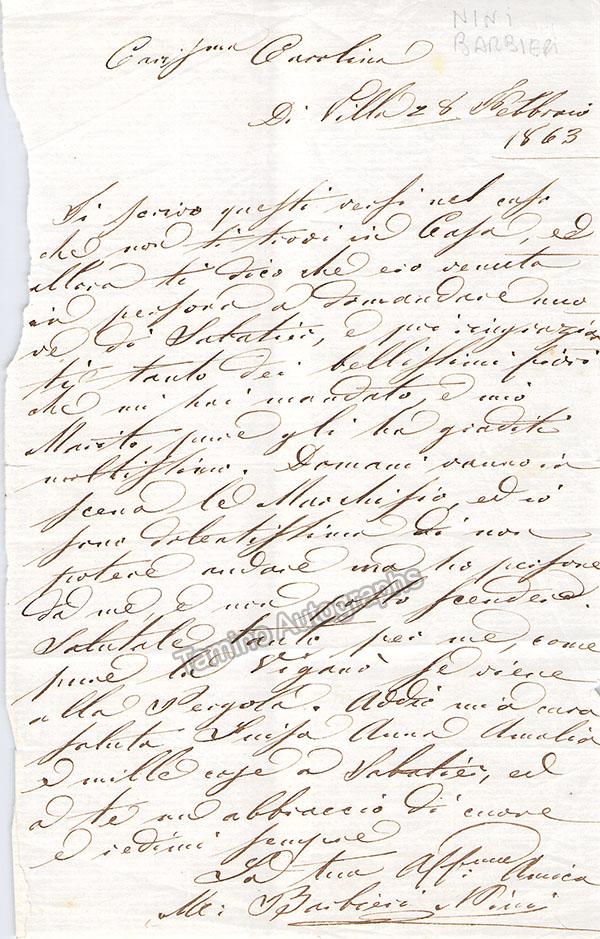 NINI
BARBIERI
Cariss.ma Carolina
Di Villa 28 Febbraio
1863
Ti scrivo questi versi nel caso
che non ti trovi in Casa, ed
allora ti dico che ero venuta
in persona a domandare nuo
ve di Sabatier, e poi ringrazia
ti tanto dei bellissimi fiori
che mi hai mandato, e mio
Marito, pure gli ha graditi
moltissimo. Domani vanno in
scena le Marchisio, ed io
sono dolentissima di non
potere andare ma ho persone
da me e non posso scendere.
Salutale tanto per me, come
pure la Viganò se viene
alla Pergola. Addio mia cara
saluta Luisa Anna Amalia
e mille cose a Sabatier, ed
a te un abbraccio di cuore
e credimi sempre
La tua Aff.ma Amica
M: Barbieri Nini
Tamino Autographs